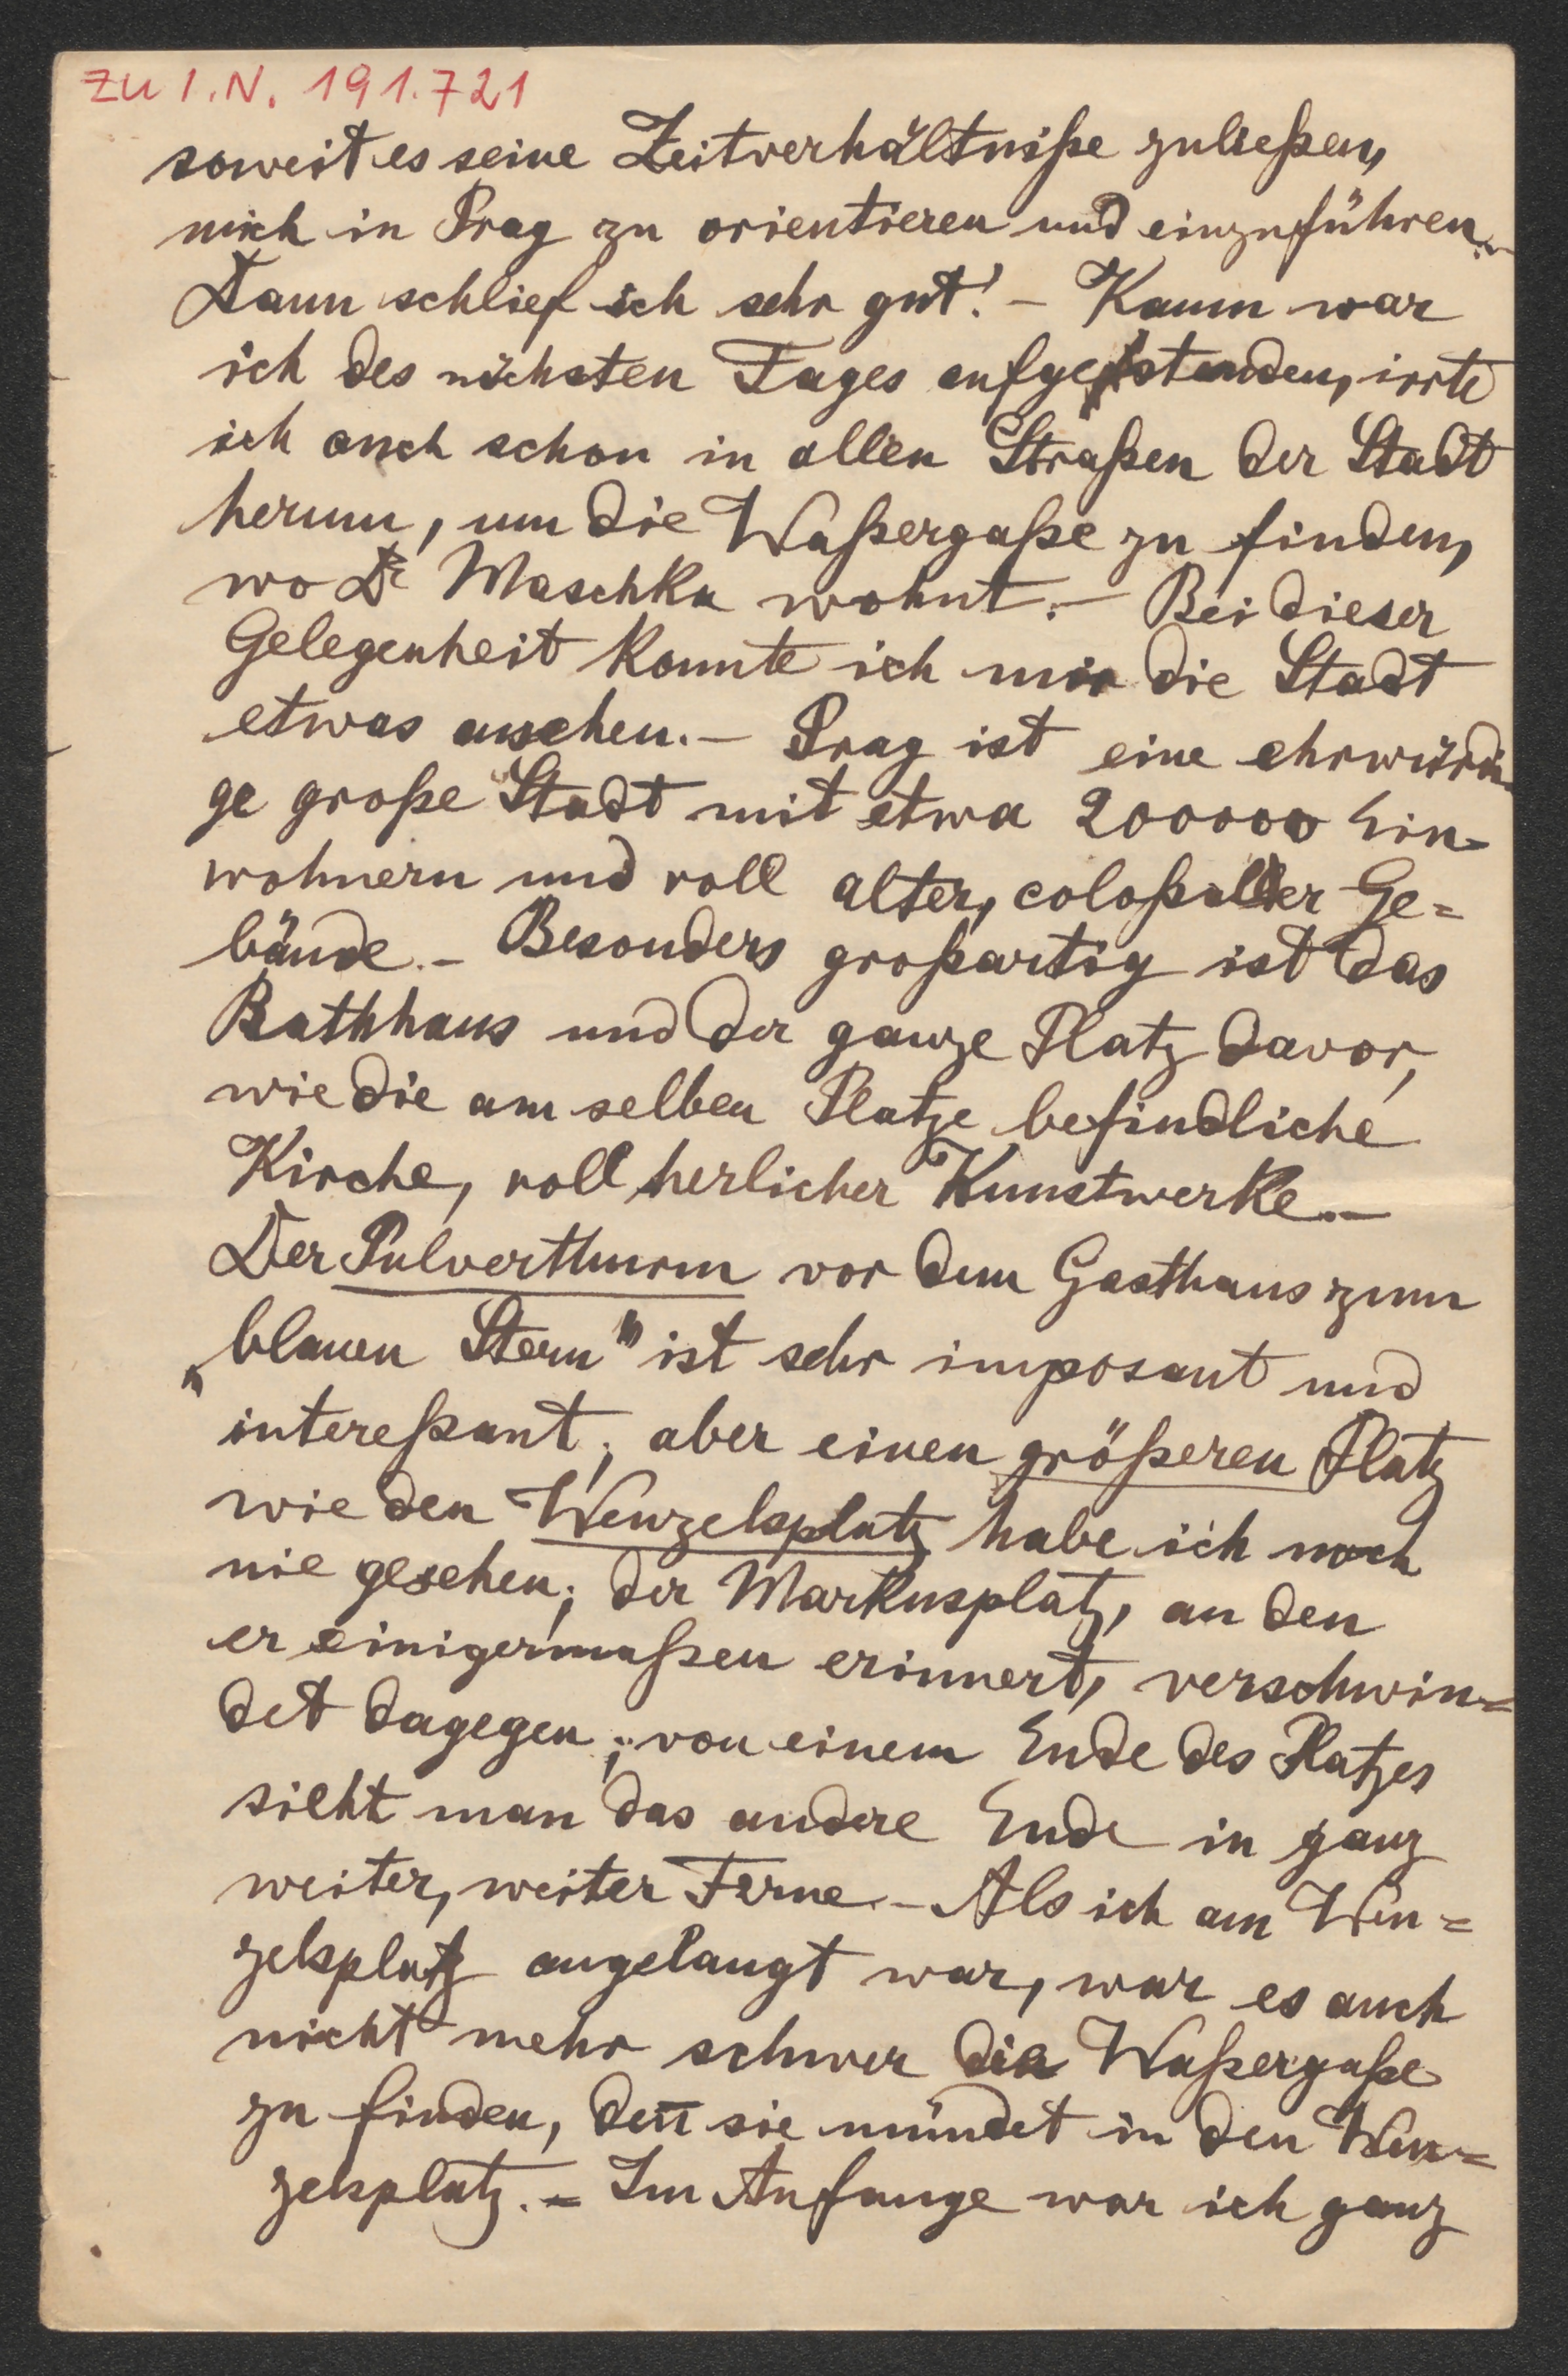 ZU I.N. 191.721
soweit es seine Zeitverhältniße zuließen,
mich in Prag zu orientieren und einzuführen.–
Dann schlief ich sehr gut! – Kaum war
ich des nächsten Tages aufgestanden, irrte
ich auch schon in allen Straßen der Stadt
herum, um die Waßergaße zu finden,
wo Dr Maschka wohnt. – Bei dieser
Gelegenheit konnte ich mir die Stadt
etwas ansehen. – Prag ist eine ehrwürdi-
ge große Stadt mit etwa 200000 Ein-
wohnern und voll alter, coloßaler Ge=
bäude. – Besonders großartig ist das
Rathhaus und der ganze Platz davor,
wie die am selben Platze befindliche
Kirche, voll herlicher Kunstwerke. –
Der Pulverthurm vor dem Gasthaus zum
„blauen Stern" ist sehr imposant und
intereßant; aber einen größeren Platz
wie den Wenzelsplatz habe ich noch
nie gesehen; der Markusplatz, an den
er einigermaßen erinnert, verschwin=
det dagegen; von einem Ende des Platzes
sieht man das andere Ende in ganz
weiter, weiter Ferne. – Als ich am Wen=
zelsplatz angelangt war, war es auch
nicht mehr schwer die Waßergaße
zu finden, den̄ sie mündet in den Wen=
zelsplatz. – Im Anfange war ich ganz